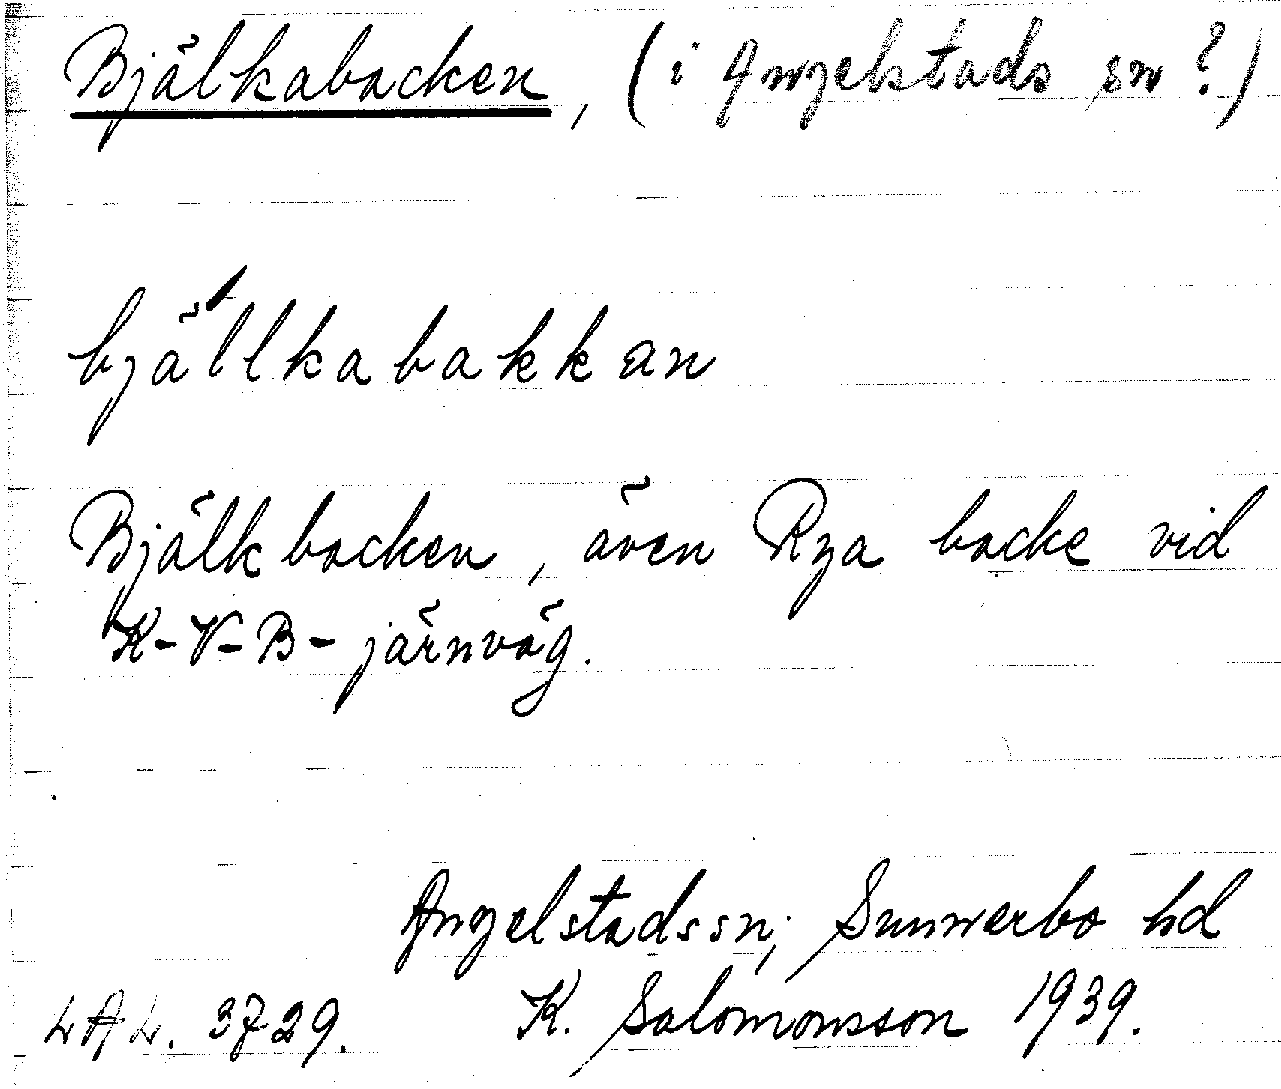 Bjälkabacken, (i Angelstads sn?)
bjä́llkabakkan
Bjälkbacken, även Rya backe vid
K-V-B-järnväg.
Angelstads sn; Sunnerbo hd
LAL. 3729. K. Salomonsson 1939.